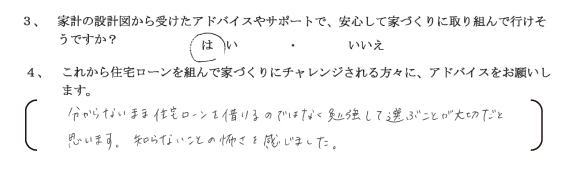 3、 家計の設計図から受けたアドバイスやサポートで、安心して家づくりに取り組んで行けそ
うですか?
はい ・ いいえ
4、 これから住宅ローンを組んで家づくりにチャレンジされる方々に、アドバイスをお願いし
ます。
分からないまま住宅ローンを借りるのではなく勉強して選ぶことが大切だと
思います。知らないことの怖さを感じました。